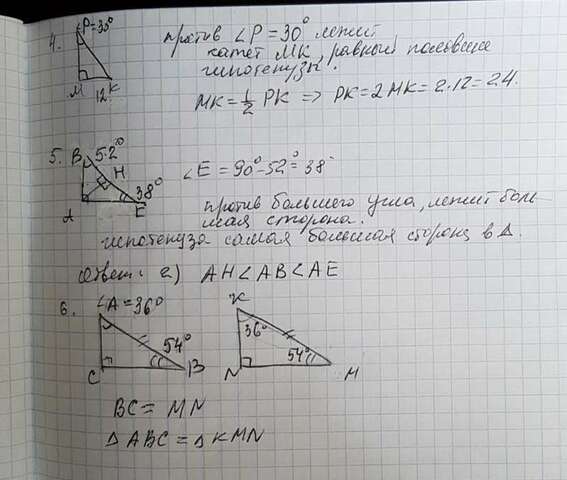 4. ∠P=30° против ∠P = 30° лежит
катет МК, равный половине
гипотенузы.
М 12 К
МК = 1/2 РК => РК = 2МК = 2·12 = 24.
5. В 52°
Н
38°
А Е
∠E = 90° - 52° = 38°
против большего угла, лежит боль-
шая сторона.
гипотенуза самая большая сторона в Δ.
Ответ: г) АН < АВ < АЕ
6. ∠A = 36°
54°
С В
К
36°
54°
N М
BC = MN
Δ ABC = Δ KMN